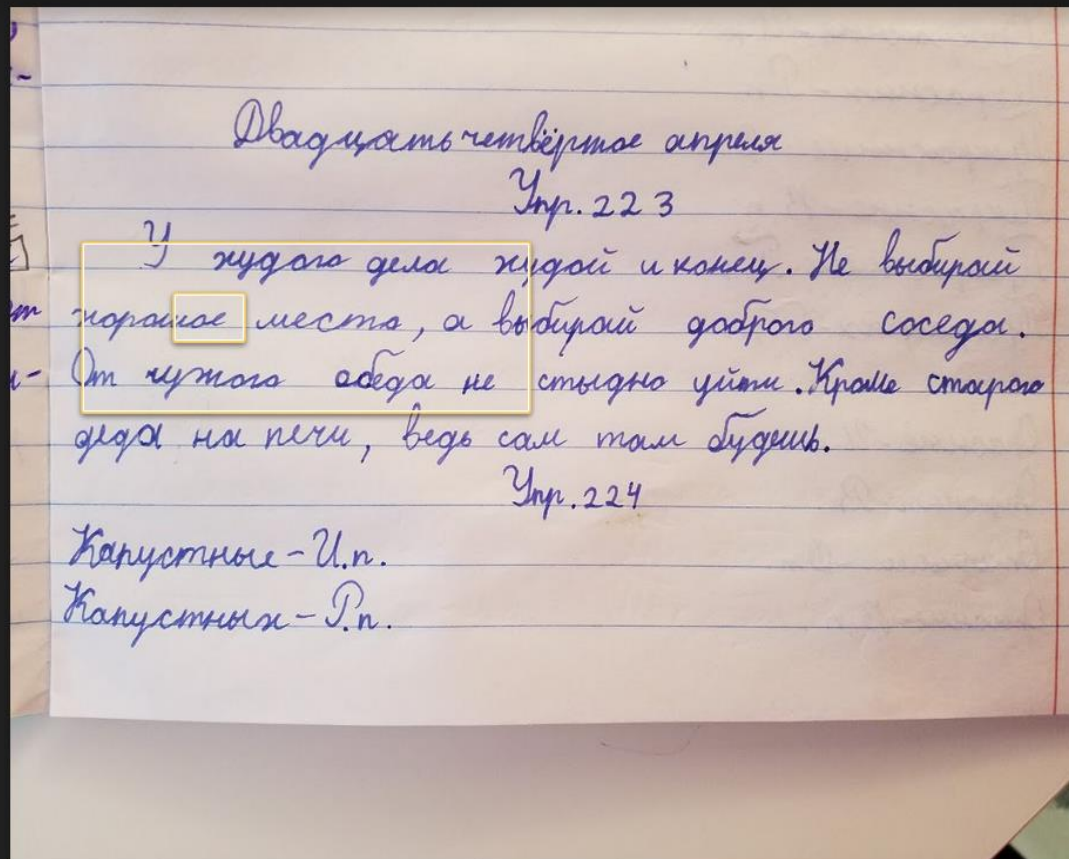 Двадцать четвёртое апреля
Упр. 223
У худого дела худой и конец. Не выбирай
хорошое место, а выбирай доброго соседа.
От чужого обеда не стыдно уйти. Кроме старого
деда на печи, ведь сам там будешь.
Упр. 224
Капустные - И.п.
Капустных - Р.п.